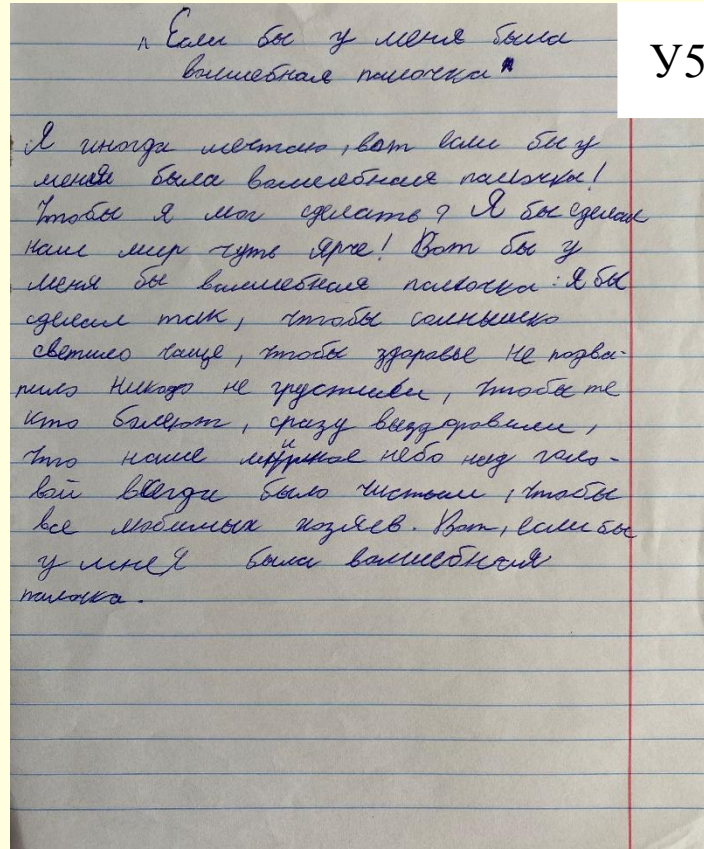 "Если бы у меня была
волшебная палочка"
У5
Я иногда мечтаю, вот если бы у
меня была волшебная палочка!
Чтобы я мог сделать? Я бы сделал
наш мир чуть ярче! Вот бы у
меня бы волшебная палочка: Я бы
сделал так, чтобы солнышко
светило чаще, чтобы здаровье не подва-
мило никого не грустили, чтобы те
кто болеют, сразу выздоровили,
что наше мирное небо над голо-
вой всегда было чистым, чтобы
все любимых хозяев. Вот, если бы
у мня была волшебная
палочка.